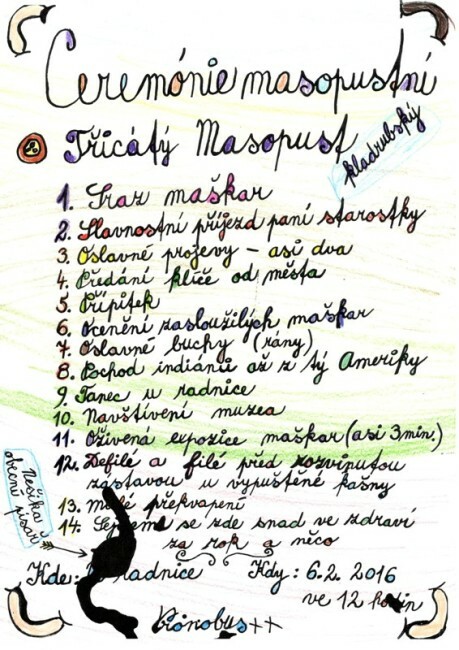 Ceremónie masopustní
Třicátý Masopust
kladrubský
1. Sraz maškar
2. Slavnostní příjezd paní starostky
3. Oslavné projevy – asi dva
4. Předání klíče od města
5. Přípitek
6. Ocenění zasloužilých maškar
7. Oslavné buchy (rány)
8. Pochod indiánů až z tý Ameriky
9. Tanec u radnice
10. Navštívení muzea
11. Oživená expozice maškar (asi 3 min.)
12. Defilé a filé před rozvinutou
zástavou u vypuštěné kašny
13. Malé překvapení
14. Sejdeme se zde snad ve zdraví
za rok a něco
obecní písař
Kde: radnice Kdy: 6.2. 2016
ve 12 hodin